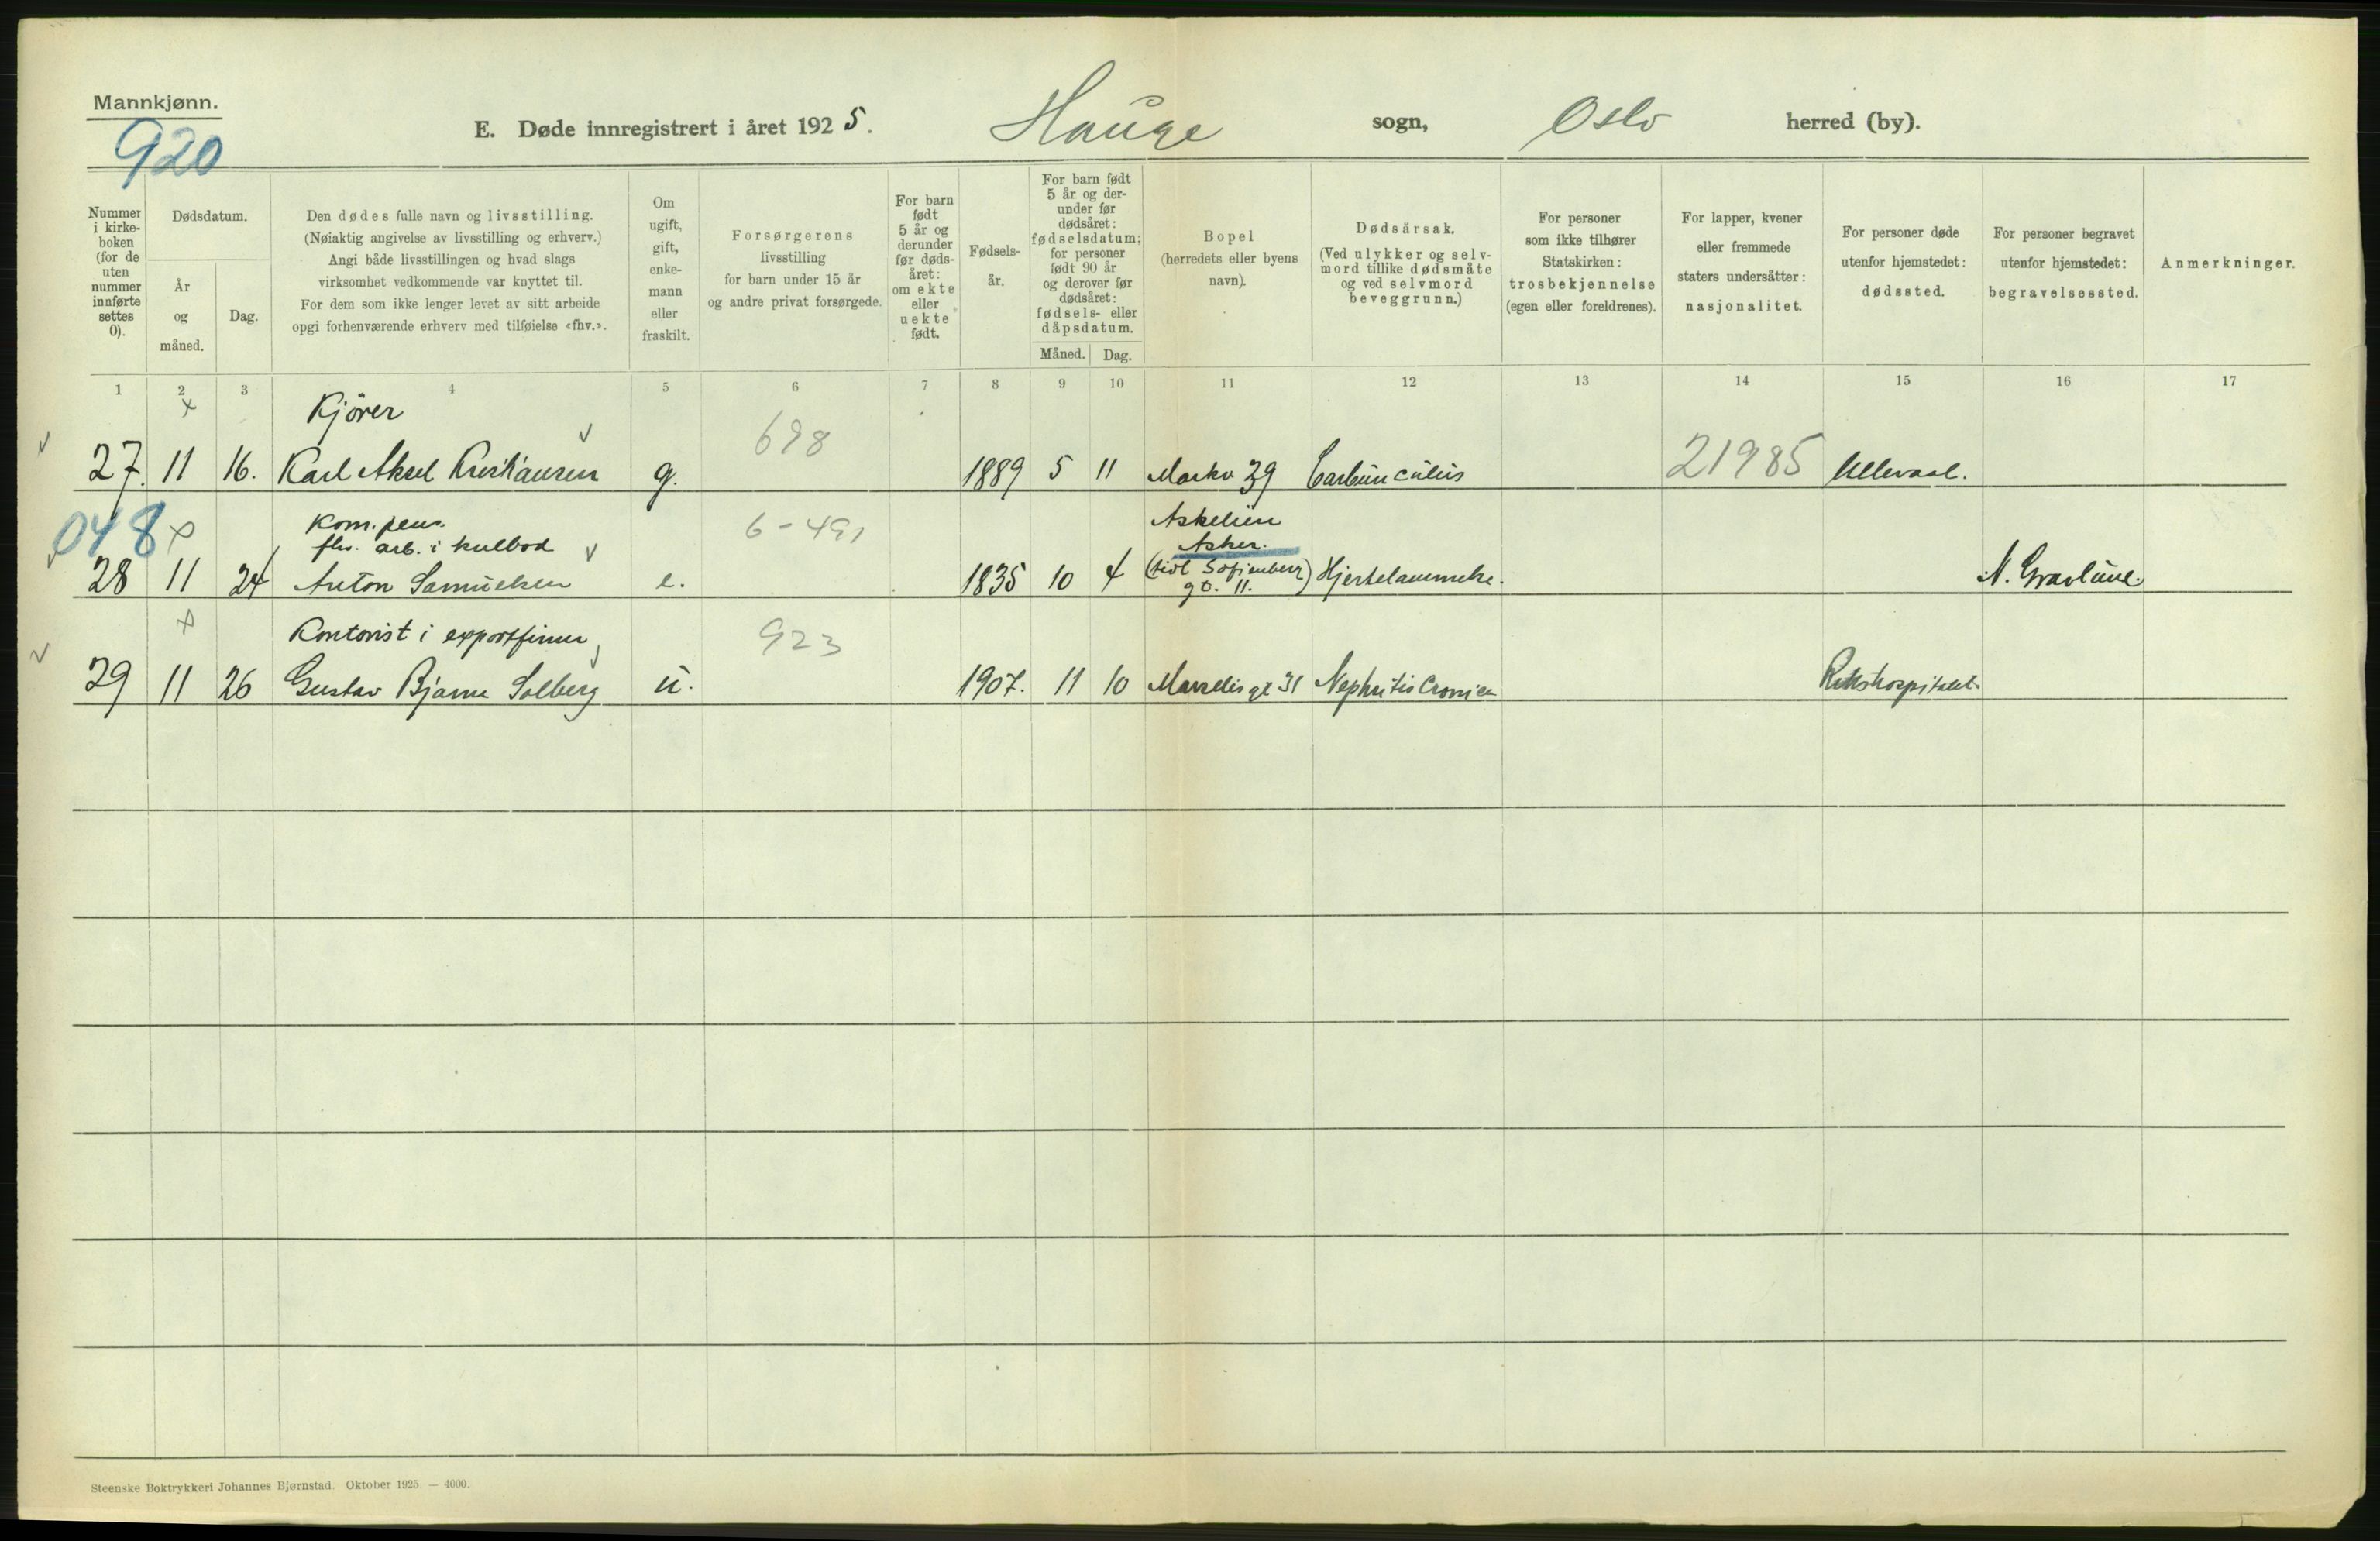 Mannkjønn.
920
E. Døde innregistrert i året 1925. Hauge sogn, Oslo herred (by).
Nummer i kirke-boken (for de uten nummer innførte settes 0).
Dødsdatum.
År og måned.
Dag.
Den dødes fulle navn og livsstilling.
(Nøiaktig angivelse av livsstilling og erhverv.)
Angi både livsstillingen og hvad slags
virksomhet vedkommende var knyttet til.
For dem som ikke lenger levet av sitt arbeide
opgi forhenværende erhverv med tilføielse «fhv.».
Om ugift, gift, enke-mann eller fraskilt.
Forsørgerens
livsstilling
for barn under 15 år
og andre privat forsørgede.
For barn født 5 år og derunder før døds-året: om ekte eller uekte født.
Fødsels-år.
For barn født 5 år og der-under før dødsåret: fødselsdatum; for personer født 90 år og derover før dødsåret: fødsels- eller dåpsdatum.
Måned. Dag.
Bopel
(herredets eller byens
navn).
Dødsårsak.
(Ved ulykker og selv-
mord tillike dødsmåte
og ved selvmord
beveggrunn.)
For personer
som ikke tilhører
Statskirken:
trosbekjennelse
(egen eller foreldrenes).
For lapper, kvener
eller fremmede
staters undersåtter:
nasjonalitet.
For personer døde
utenfor hjemstedet:
dødssted.
For personer begravet
utenfor hjemstedet:
begravelsessted.
Anmerkninger.
1 2 3 4 5 6 7 8 9 10 11 12 13 14 15 16 17
Kjörer
698
27. 11 16. Karl Aksel Kristiansen g. 1889 5 11 Markv 39 Carbunculus 21985 Ullevaal.
048
Kom. pens. 6-491
fhv. arb. i kulbod Asker.
28 11 24 Anton Samuelsen e. 1835 10 4 (tidl Sofienberg gt. 11.) Hjertelammelse. N. Gravlund.
Kontorist i exportfirma 923
29 11 26 Gustav Bjarne Solberg u. 1907. 11 10 Marselisgt 31 Nephritis Cronica Rikshospitalet.
Steenske Boktrykkeri Johannes Bjørnstad. Oktober 1925. — 4000.